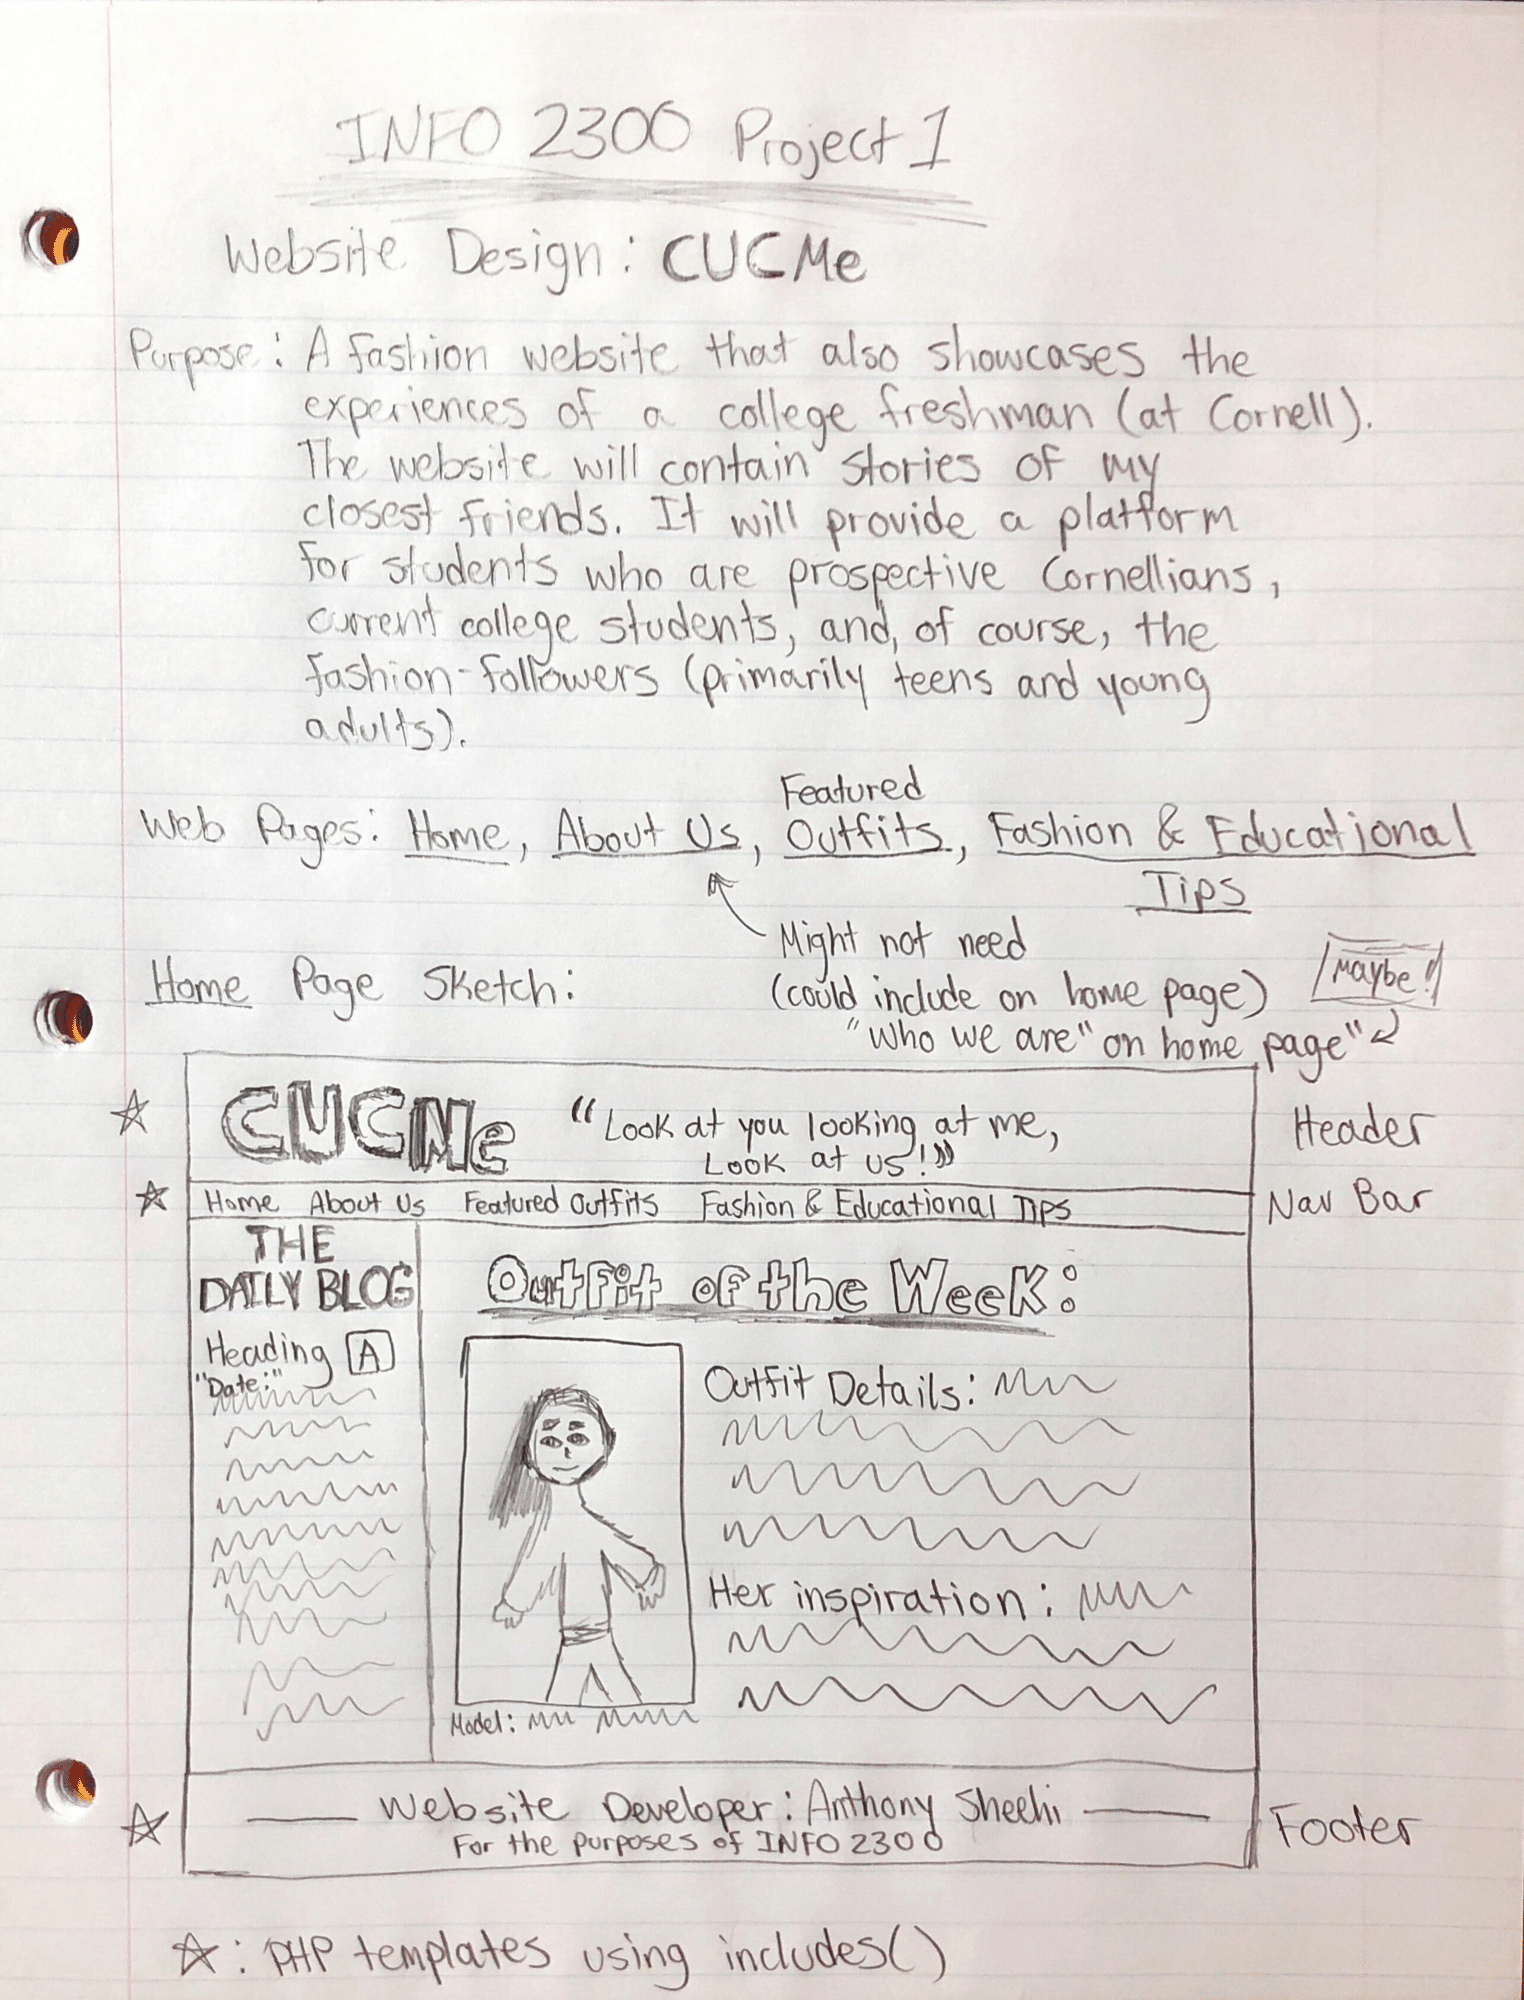 INFO 2300 Project 1
Website Design: CUCMe
Purpose: A fashion website that also showcases the
experiences of a college freshman (at Cornell).
The website will contain stories of my
closest friends. It will provide a platform
for students who are prospective Cornellians,
current college students, and, of course, the
fashion-followers (primarily teens and young
adults).
Featured
Web Pages: Home, About Us, Outfits, Fashion & Educational
Tips
Might not need
Home Page Sketch: (could include on home page) Maybe!
"Who we are" on home page"
CUCMe "Look at you looking at me,
Look at us!" Header
Home About Us Featured Outfits Fashion & Educational Tips Nav Bar
THE
DAILY BLOG
Outfit of the Week:
Heading A
"Date:"
Outfit Details:
Her inspiration:
Model:
Website Developer: Anthony Sheehi
For the purposes of INFO 2300
Footer
☆: PHP templates using includes()